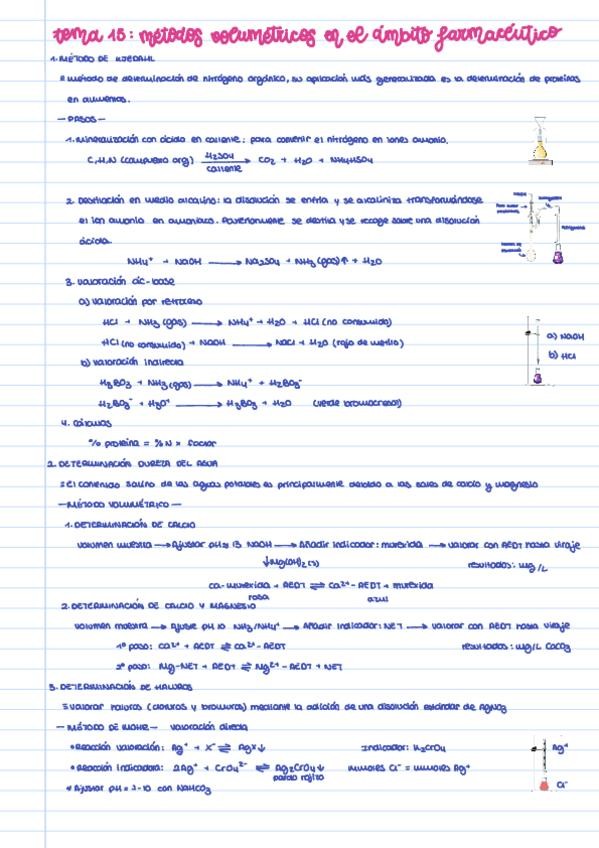 tema 15: métodos volumétricos en el ámbito farmacéutico
1. MÉTODO DE KJEDAHL
= método de determinación de nitrógeno orgánico, su aplicación más generalizada es la determinación de proteínas
en alimentos.
— PASOS —
1. Mineralización con ácido en caliente: para convertir el nitrógeno en iones amonio.
C,H,N (compuesto org) H2SO4 / caliente → CO2 + H2O + NH4HSO4
2. Destilación en medio alcalino: la disolución se enfría y se alcaliniza transformándose
el ion amonio en amoniaco. Posteriormente se destila y se recoge sobre una disolución
ácida.
NH4+ + NaOH → Na2SO4 + NH3(gas)↑ + H2O
3. Valoración ác-base
a) Valoración por retroceso
HCl + NH3 (gas) → NH4+ + H2O + HCl (no consumido)
a) NaOH
HCl (no consumido) + NaOH → NaCl + H2O (rojo de metilo)
b) HCl
b) Valoración indirecta
H3BO3 + NH3(gas) → NH4+ + H2BO3-
H2BO3- + H3O+ → H3BO3 + H2O (verde bromocresol)
4. Cálculos
% proteína = %N x factor
2. DETERMINACIÓN DUREZA DEL AGUA
= el contenido salino de las aguas potables es principalmente debido a las sales de calcio y magnesio
— MÉTODO VOLUMÉTRICO —
1. DETERMINACIÓN DE CALCIO
Volumen muestra → Ajustar pH≥13 NaOH → Añadir indicador: murexida → Valorar con AEDT hasta viraje
↓Mg(OH)2(s) resultados: mg/L
Ca-murexida + AEDT ⇌ Ca2+ - AEDT + murexida
rosa azul
2. DETERMINACIÓN DE CALCIO Y MAGNESIO
Volumen muestra → Ajuste pH 10 NH3/NH4+ → Añadir indicador: NET → Valorar con AEDT hasta viraje
1º paso: Ca2+ + AEDT ⇌ Ca2+ - AEDT resultados: mg/L CaCO3
2º paso: Mg-NET + AEDT ⇌ Mg2+ - AEDT + NET
3. DETERMINACIÓN DE HALUROS
= valorar haluros (cloruros y bromuros) mediante la adición de una disolución estándar de AgNO3
— MÉTODO DE MOHR — valoración directa
• Reacción valoración: Ag+ + X- ⇌ AgX↓ Indicador: K2CrO4
Ag+
• Reacción indicadora: 2Ag+ + CrO4 2- ⇌ Ag2CrO4↓ mmoles Cl- = mmoles Ag+
pardo rojizo
Cl-
* Ajustar pH = 7-10 con NaHCO3